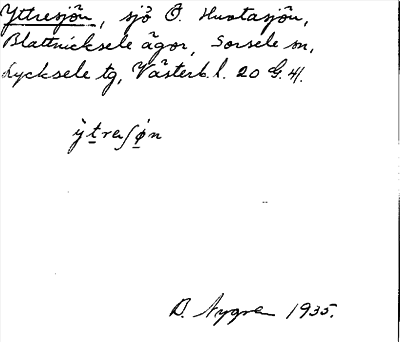 Yttresjön, sjö Ö. Huvtasjön,
Blattnicksele ägor, Sorsele sn,
Lycksele tg, Västerb. l. 20 G. 41.
ỳtreʃøn
B. Nygren 1935.